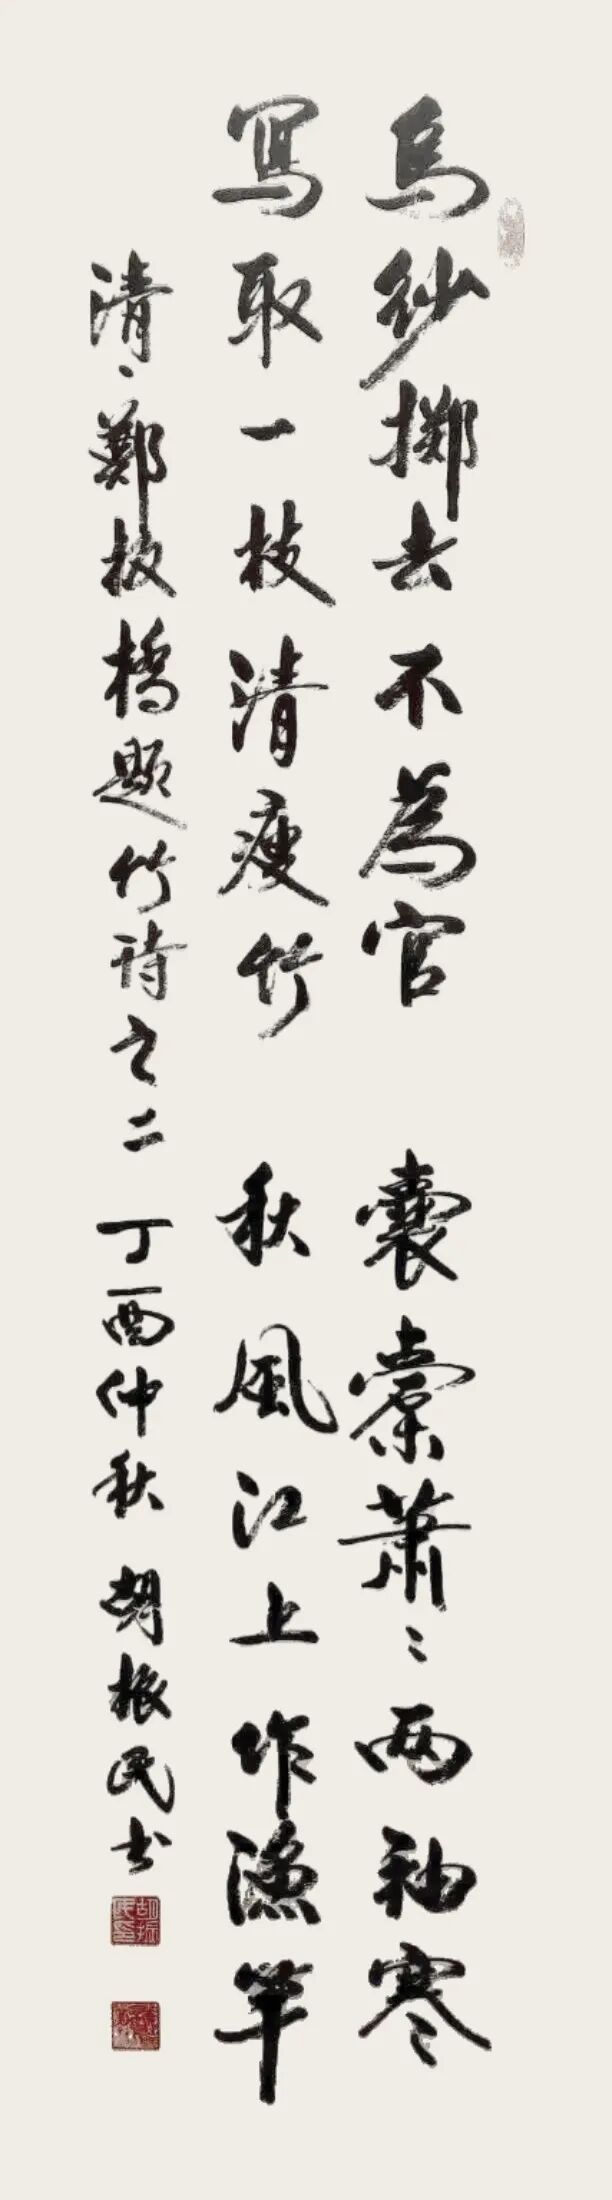 烏紗擲去不為官 囊橐蕭〻兩袖寒
寫取一枝清瘦竹 秋風江上作漁竿
清、鄭板橋題竹詩之二 丁酉仲秋 胡振民书